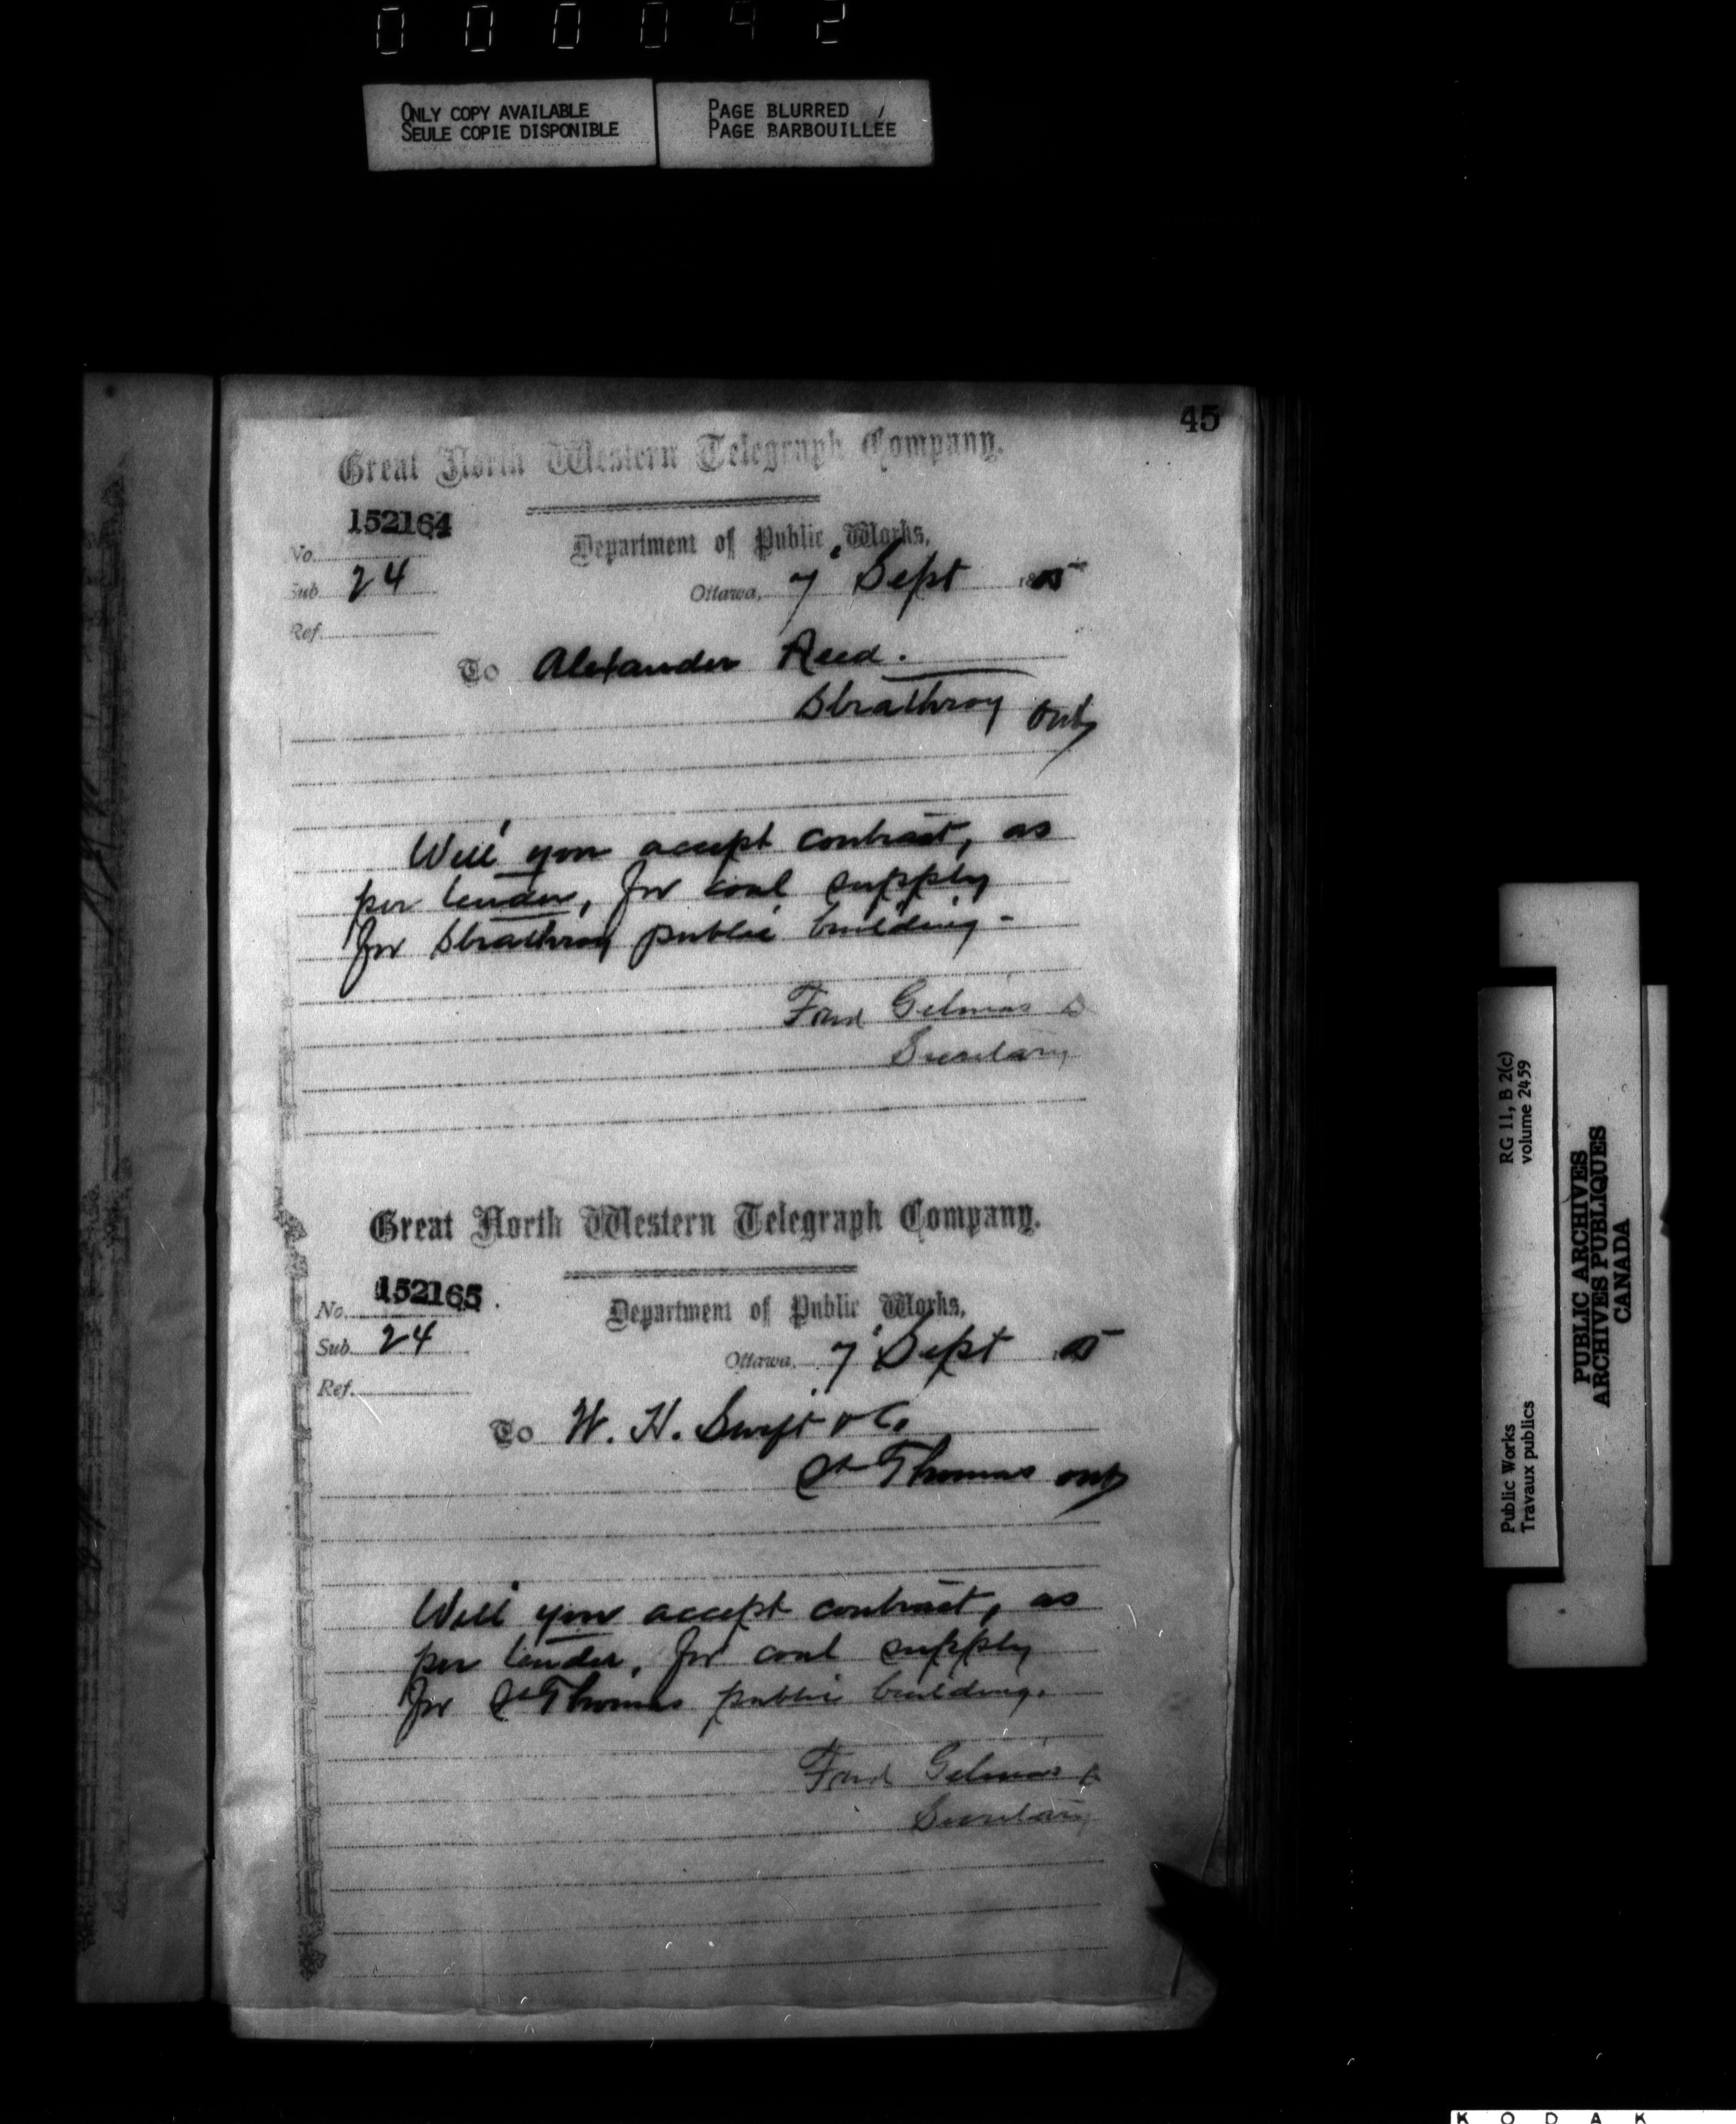 000042
ONLY COPY AVAILABLE
SEULE COPIE DISPONIBLE
PAGE BLURRED
PAGE BARBOUILLÉE
45
Great North Western Telegraph Company.
152164
No.
Department of Public Works,
Sub. 24
Ottawa, 7 Sept
Ref.
To Alexander Reed.
Strathroy Ont
Will you accept contract, as
per tender, for coal supply
for Strathroy public building-
Fred Gelinas
Secretary
Great North Western Telegraph Company.
152165
No.
Department of Public Works,
Sub. 24
Ottawa, 7 Sept
Ref.
To W. H. Swift & Co
St Thomas Ont
Will you accept contract, as
per tender, for coal supply
for St Thomas public building.
Fred Gelinas
Secretary
RG 11, B 2(c)
volume 2459
Public Works
Travaux publics
PUBLIC ARCHIVES
ARCHIVES PUBLIQUES
CANADA
KODAK